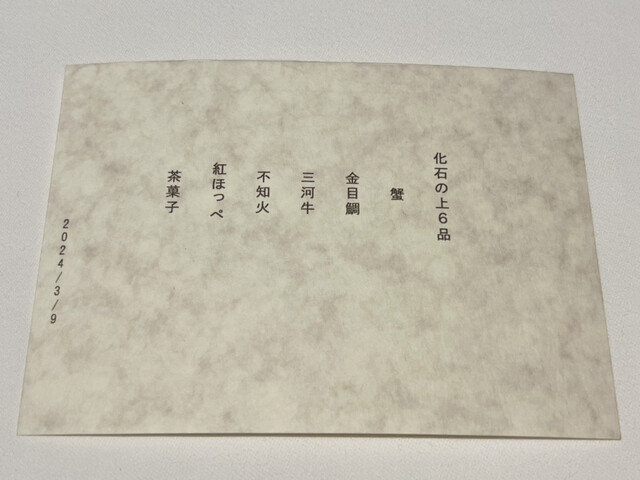 化石の上6品
蟹
金目鯛
三河牛
不知火
紅ほっぺ
茶菓子
2024/3/9